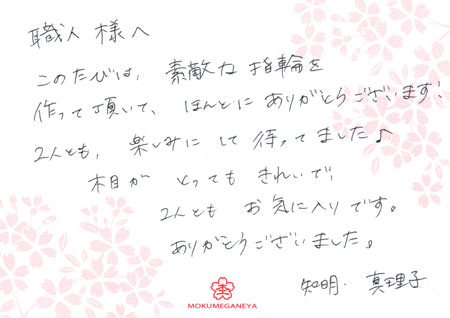 職人 様へ
このたびは、素敵な指輪を
作って頂いて、ほんとにありがとうございます!
2人とも、楽しみにして待ってました♪
木目が とっても きれいで、
2人とも お気に入りです。
ありがとうございました。
知明・真理子
MOKUMEGANEYA